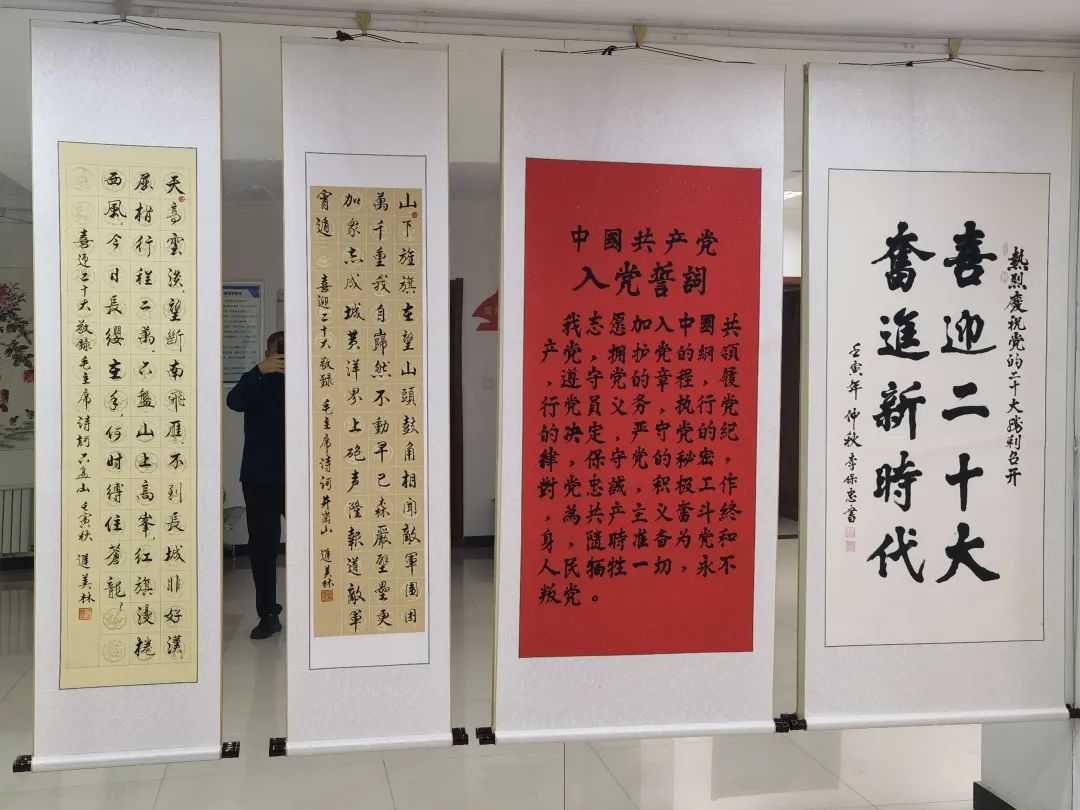 天高雲淡望斷南飛雁不到長城非好漢
屈指行程二萬六盤山上高峯紅旗漫捲
西風今日長纓在手何時縛住蒼龍
喜迎二十大敬錄毛主席詩詞六盘山壬寅秋進美林
山下旌旗在望山頭鼓角相聞敵軍圍困
萬千重我自巋然不動早已森嚴壁壘更
加衆志成城黄洋界上砲声隆報道敵軍
宵遁 喜迎二十大敬錄毛主席詩詞井崗山進美林
中國共产党
入党誓詞
我志愿加入中國共
产党，拥护党的綱領
，遵守党的章程，履
行党員义务，执行党
的决定，严守党的紀
律，保守党的秘密，
對党忠誠，积极工作
，為共产主义奮斗終
身，隨時准备为党和
人民犧牲一切，永不
叛党。
熱烈慶祝党的二十大勝利召开
喜迎二十大
奮進新時代
壬寅年仲秋李保忠書